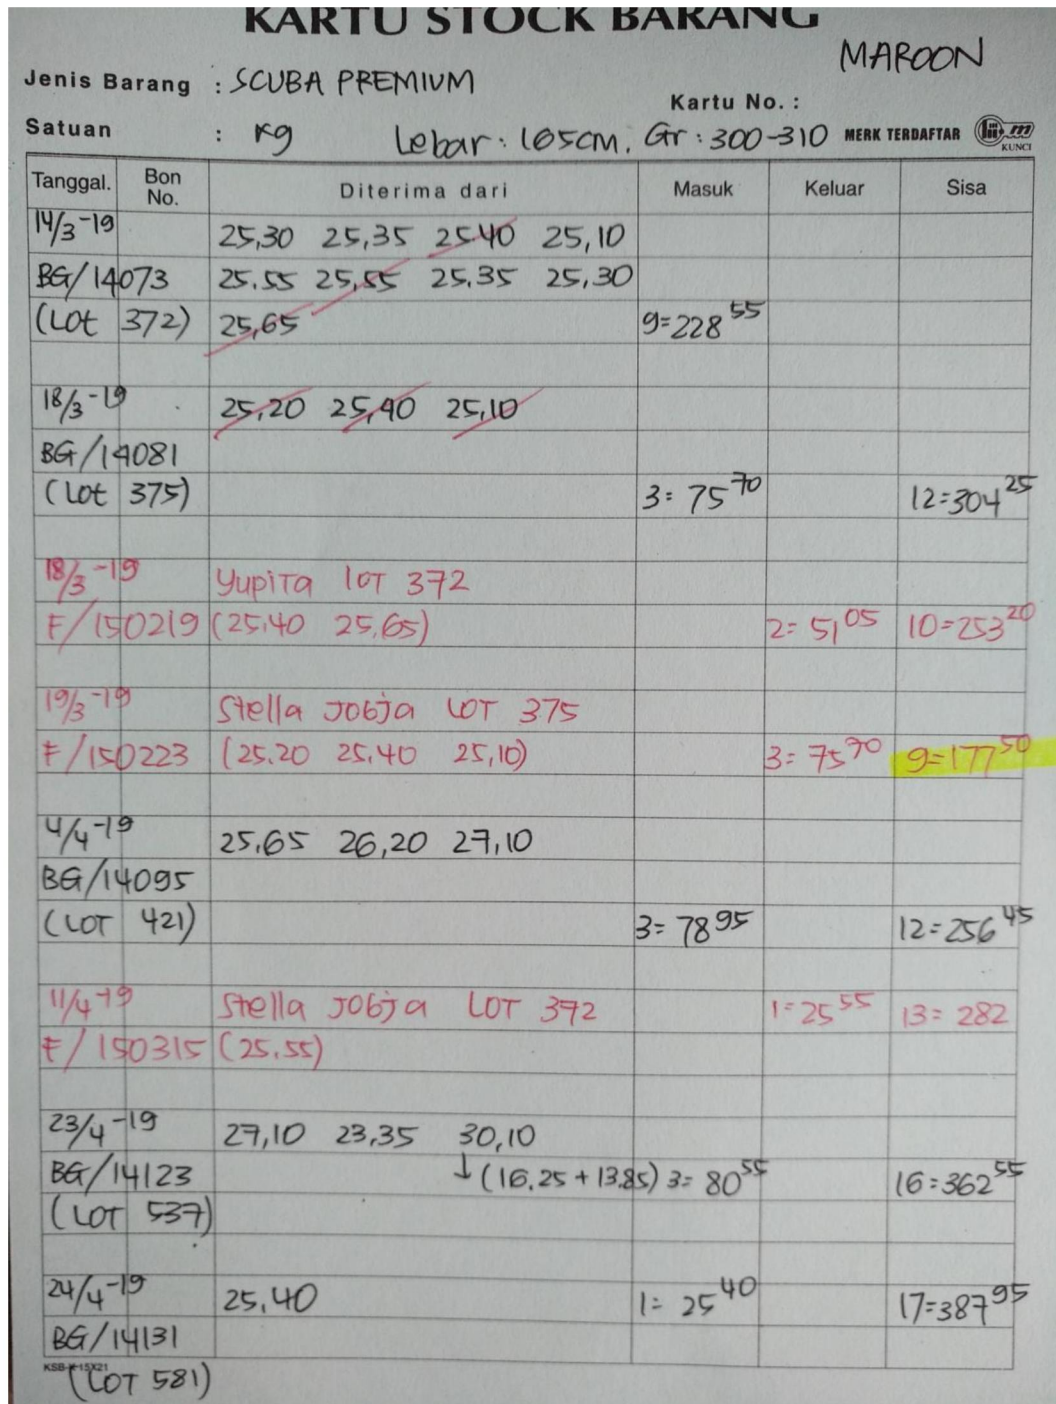 KARTU STOCK BARANG
MAROON
Jenis Barang : SCUBA PREMIUM
Kartu No. :
Satuan : kg Lebar : 165cm, Gr : 300-310 MERK TERDAFTAR m KUNCI
Tanggal. Bon No. Diterima dari Masuk Keluar Sisa
14/3-19 25,30 25,35 25.40 25,10
BG/14073 25.55 25,55 25.35 25,30
(Lot 372) 25,65 9=228 55
18/3-19 25,20 25,40 25,10
BG/14081
(Lot 375) 3= 75 70 12=304 25
18/3-19 Yupita lOT 372
F/150219 (25.40 25,65) 2= 51 05 10=253 20
19/3-19 Stella Jobja LOT 375
F/150223 (25.20 25.40 25,10) 3= 75 70 9=177 50
4/4-19 25.65 26,20 27,10
BG/14095
(LOT 421) 3= 78 95 12=256 45
11/4-19 Stella Jobja LOT 372 1=25 55 13= 282
F/150315 (25.55)
23/4-19 27,10 23,35 30,10
BG/14123 ↓(16.25+13.85) 3= 80 55 16=362 55
(LOT 537)
24/4-19 25.40 1= 25 40 17=387 95
BG/14131
KSB-K-15X21
(LOT 581)